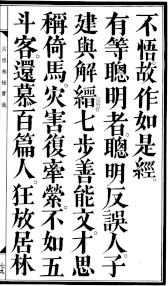 不悟故。作如是經。
有等聰明者。聰明反誤人。子
建與解縉。七步善能文。才思
稱倚馬。灾害復牽縈。不如五
斗客。還慕百篇人。狂放居林